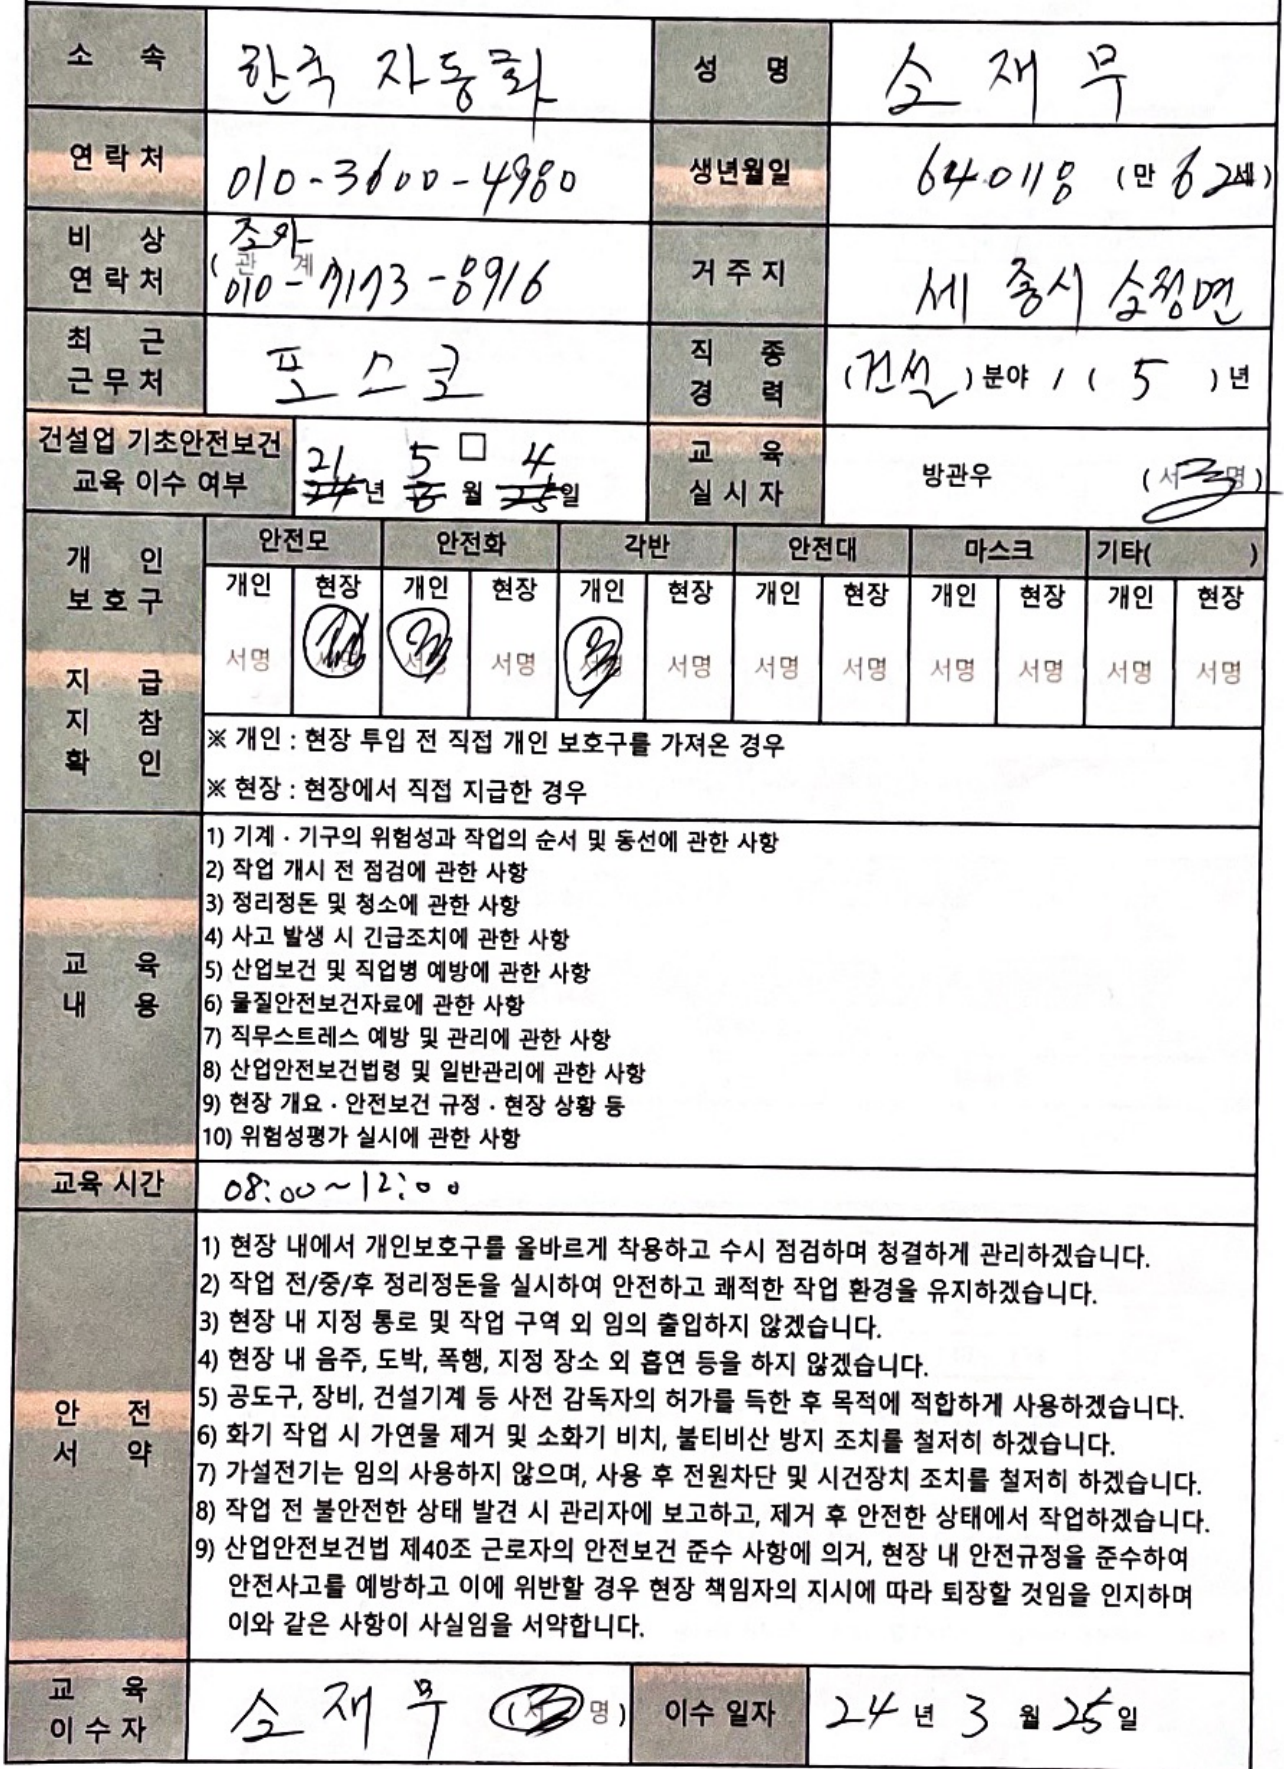 소 속 한국 자동화 성 명 소 재 무
연락처 010-3600-4980 생년월일 640118 (만 62세)
비 상 조카
연락처 (관 계 010-7173-8916 거주지 세종시 소정면
최 근 포스코 직 종 (건설) 분야 / ( 5 ) 년
근무처 경 력
건설업 기초안전보건 21 5 □ 4 교 육 방관우 (서명)
교육 이수 여부 년 월 일 실시자
개 인 안전모 안전화 각반 안전대 마스크 기타( )
보호구 개인 현장 개인 현장 개인 현장 개인 현장 개인 현장 개인 현장
지 급 서명 서명 서명 서명 서명 서명 서명 서명 서명 서명 서명 서명
지 참 ※ 개인 : 현장 투입 전 직접 개인 보호구를 가져온 경우
확 인 ※ 현장 : 현장에서 직접 지급한 경우
교 육
내 용
1) 기계 · 기구의 위험성과 작업의 순서 및 동선에 관한 사항
2) 작업 개시 전 점검에 관한 사항
3) 정리정돈 및 청소에 관한 사항
4) 사고 발생 시 긴급조치에 관한 사항
5) 산업보건 및 직업병 예방에 관한 사항
6) 물질안전보건자료에 관한 사항
7) 직무스트레스 예방 및 관리에 관한 사항
8) 산업안전보건법령 및 일반관리에 관한 사항
9) 현장 개요 · 안전보건 규정 · 현장 상황 등
10) 위험성평가 실시에 관한 사항
교육 시간 08:00~12:00
안 전
서 약
1) 현장 내에서 개인보호구를 올바르게 착용하고 수시 점검하며 청결하게 관리하겠습니다.
2) 작업 전/중/후 정리정돈을 실시하여 안전하고 쾌적한 작업 환경을 유지하겠습니다.
3) 현장 내 지정 통로 및 작업 구역 외 임의 출입하지 않겠습니다.
4) 현장 내 음주, 도박, 폭행, 지정 장소 외 흡연 등을 하지 않겠습니다.
5) 공도구, 장비, 건설기계 등 사전 감독자의 허가를 득한 후 목적에 적합하게 사용하겠습니다.
6) 화기 작업 시 가연물 제거 및 소화기 비치, 불티비산 방지 조치를 철저히 하겠습니다.
7) 가설전기는 임의 사용하지 않으며, 사용 후 전원차단 및 시건장치 조치를 철저히 하겠습니다.
8) 작업 전 불안전한 상태 발견 시 관리자에 보고하고, 제거 후 안전한 상태에서 작업하겠습니다.
9) 산업안전보건법 제40조 근로자의 안전보건 준수 사항에 의거, 현장 내 안전규정을 준수하여
안전사고를 예방하고 이에 위반할 경우 현장 책임자의 지시에 따라 퇴장할 것임을 인지하며
이와 같은 사항이 사실임을 서약합니다.
교 육 소 재 무 (서명) 이수 일자 24 년 3 월 25 일
이수자